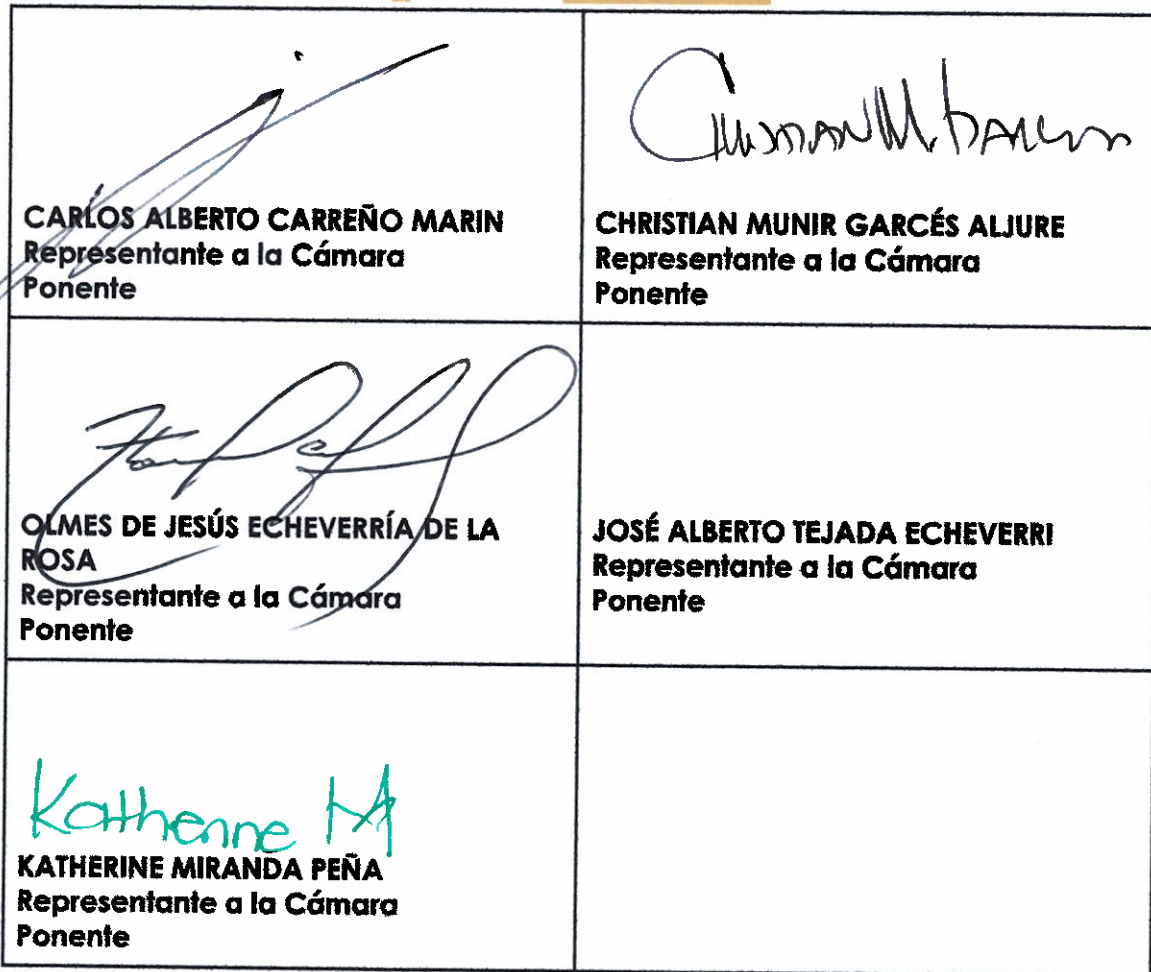 CARLOS ALBERTO CARREÑO MARIN
Representante a la Cámara
Ponente
CHRISTIAN M. GARCES
CHRISTIAN MUNIR GARCÉS ALJURE
Representante a la Cámara
Ponente
OLMES DE JESÚS ECHEVERRÍA DE LA
ROSA
Representante a la Cámara
Ponente
JOSÉ ALBERTO TEJADA ECHEVERRI
Representante a la Cámara
Ponente
Katherine M
KATHERINE MIRANDA PEÑA
Representante a la Cámara
Ponente